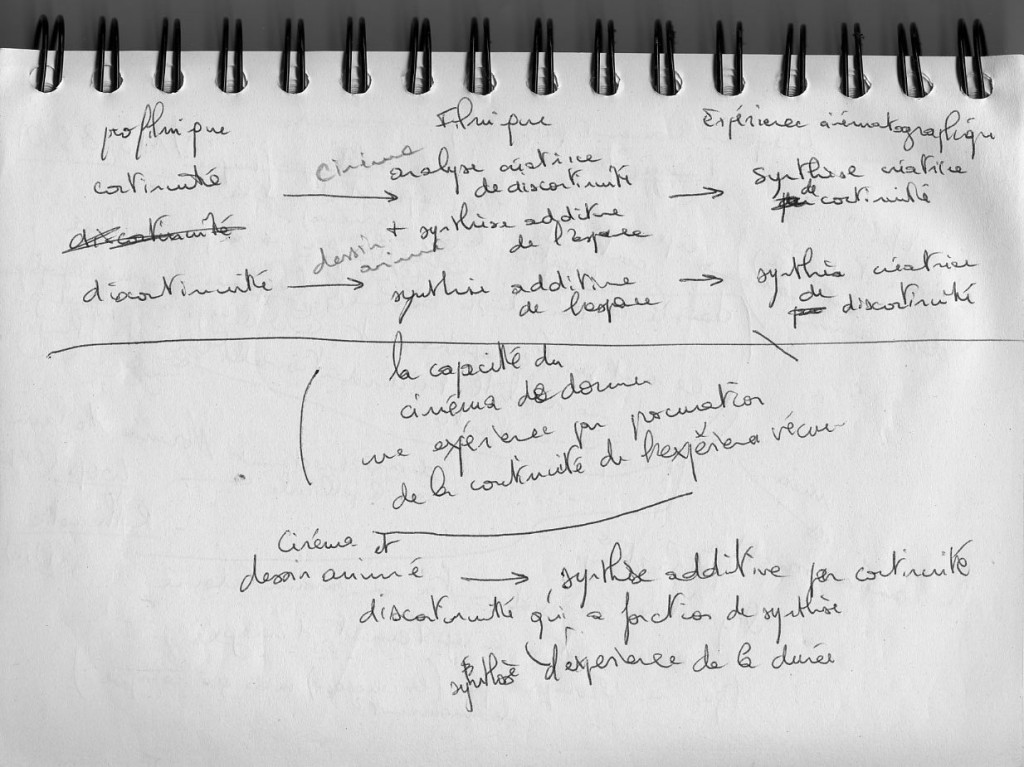 profilmique Filmique Expérience cinématographique
continuité → cinéma analyse créatrice de discontinuité → synthèse créatrice de continuité
+ synthèse additive de l'espace
discontinuité
discontinuité → dessin animé synthèse additive de l'espace → synthèse créatrice de discontinuité
la capacité du
cinéma de donner
une expérience par procuration
de la continuité de l'expérience vécue
Cinéma et
dessin animé → synthèse additive par continuité
discontinuité qui a fonction de synthèse
synthèse d'expérience de la durée